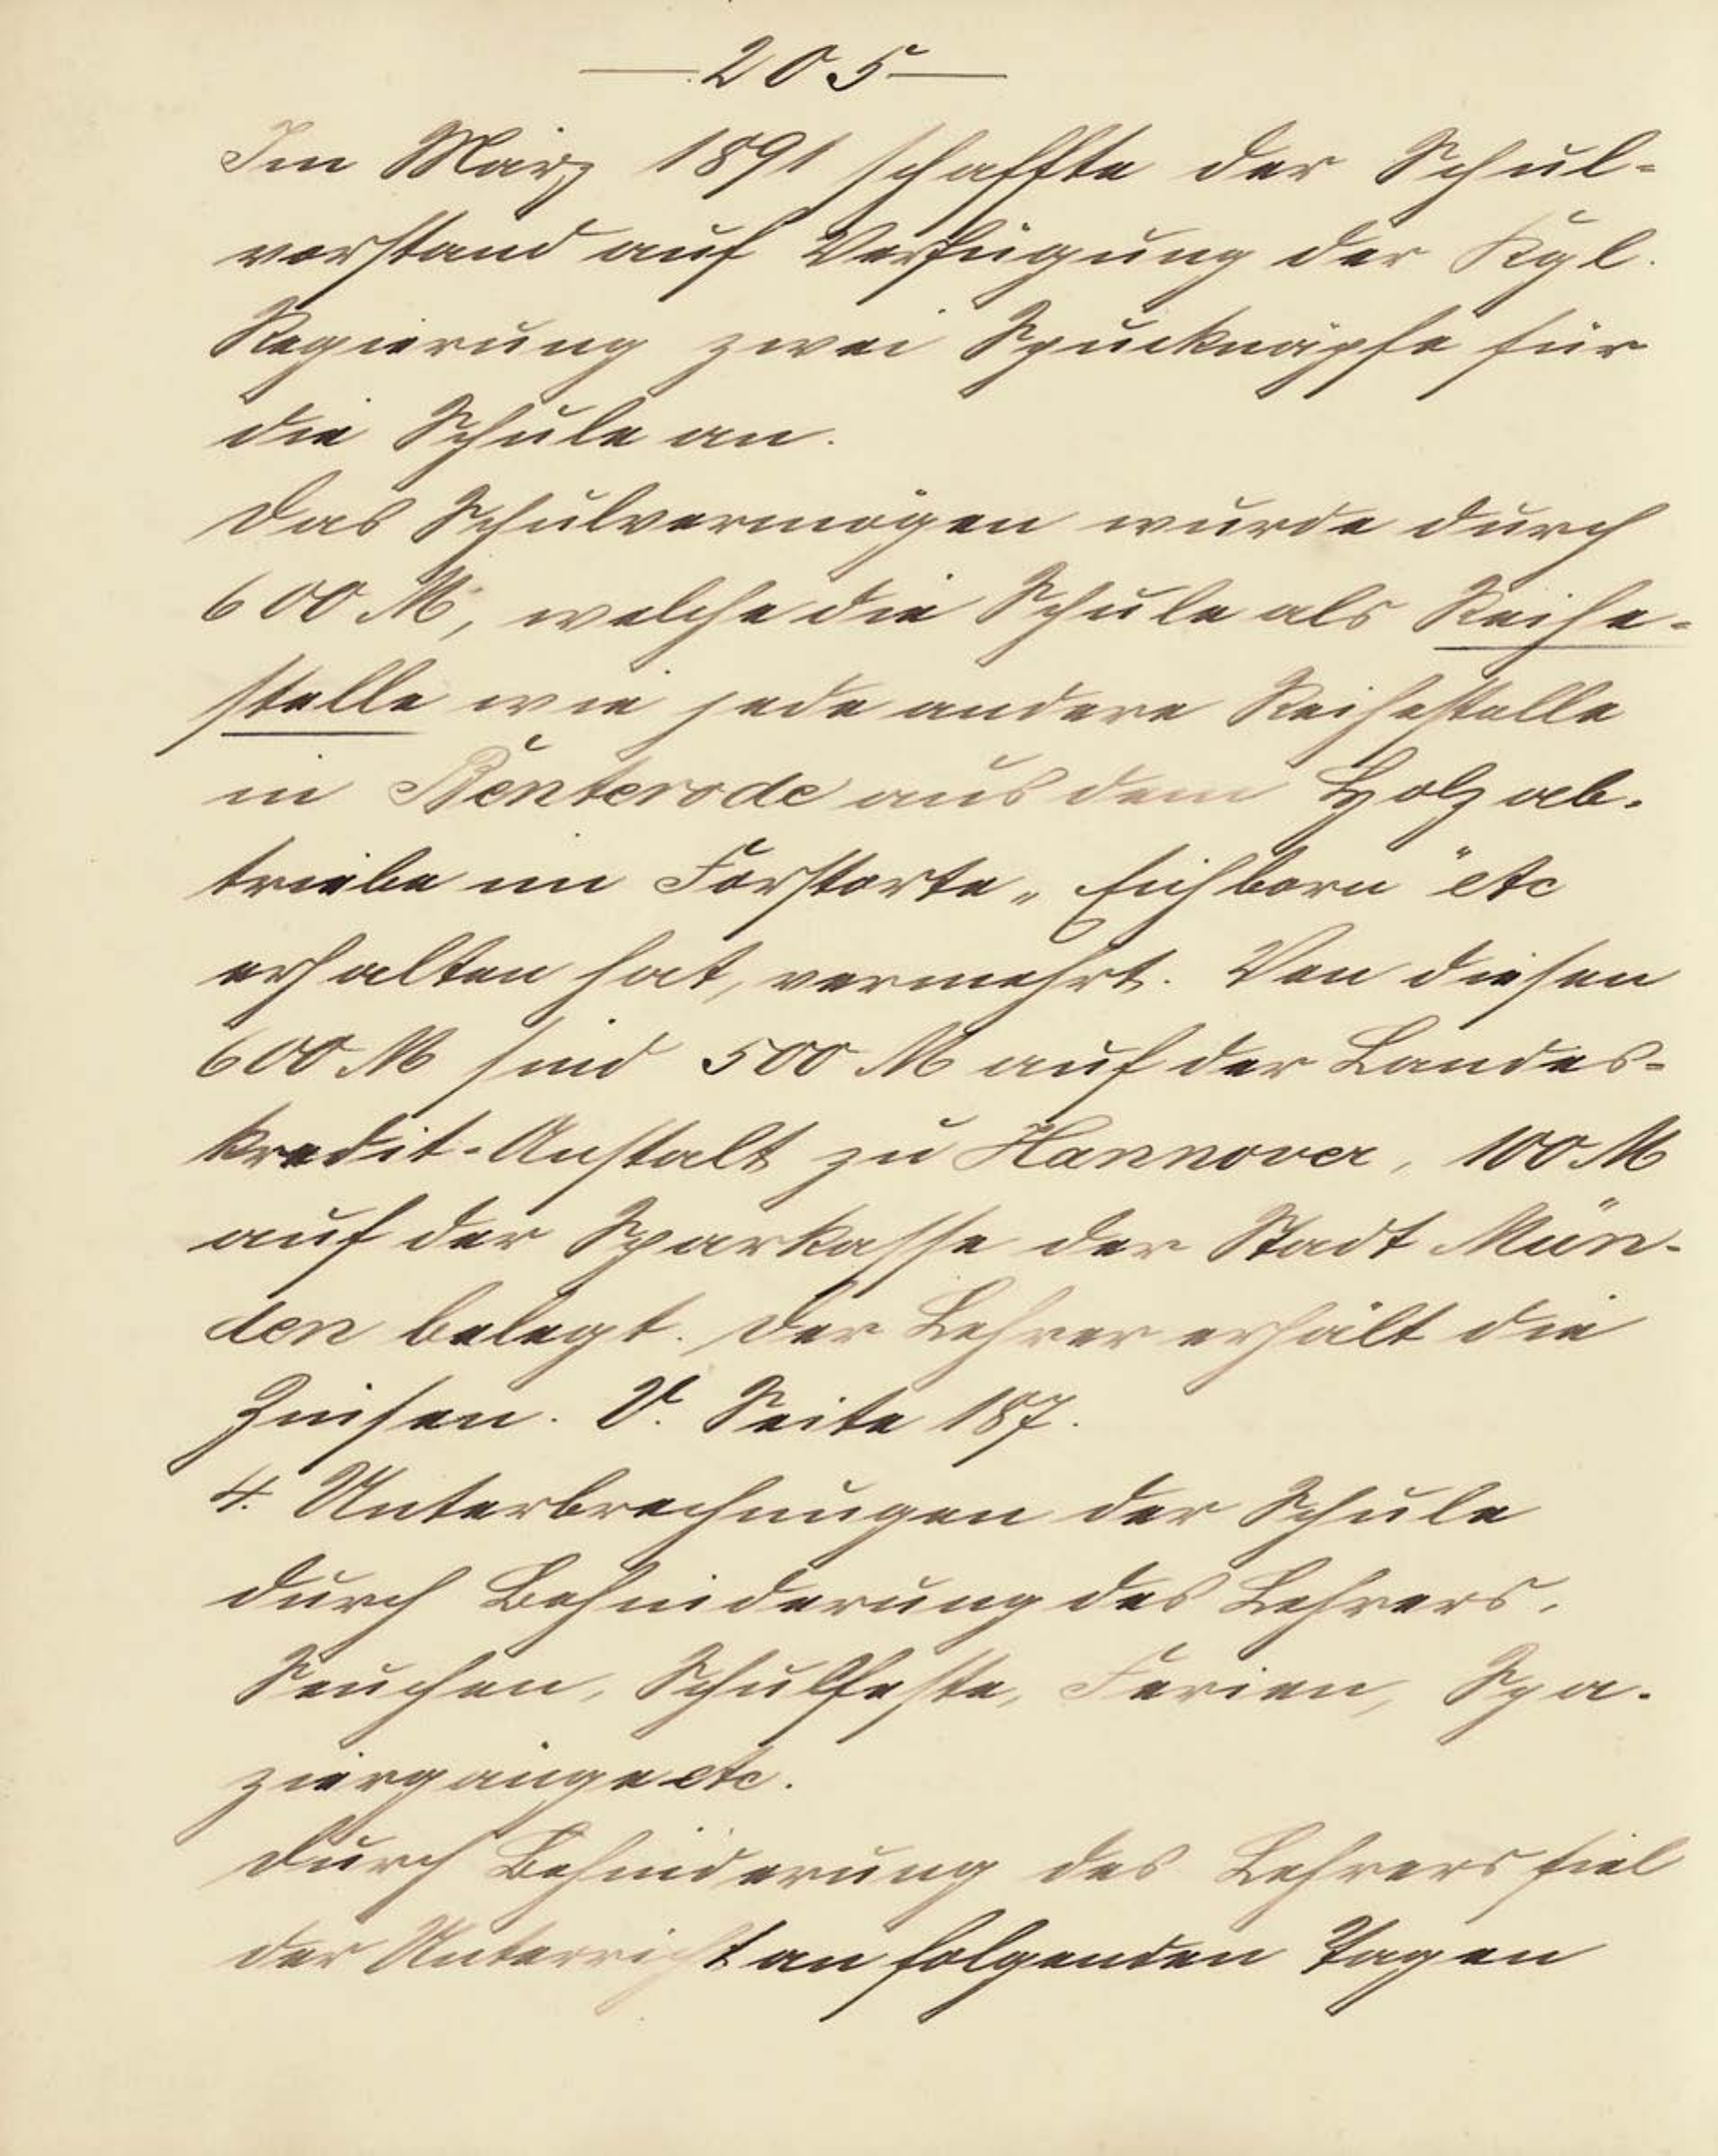 — 205 —
Im März 1891 schaffte der Schul-
vorstand auf Verfügung der Kgl.
Regierung zwei Spucknäpfe für
die Schule an.
Das Schulvermögen wurde durch
600 M, welche die Schule als Reihe-
stelle wie jede andere Reihestelle
in Benterode aus dem Holzab-
triebe im Forstorte „Eichborn“ etc
erhalten hat, vermehrt. Von diesen
600 M sind 500 M auf der Landes-
kredit-Anstalt zu Hannover, 100 M
auf der Sparkasse der Stadt Mün-
den belegt. Der Lehrer erhält die
Zinsen. V. Seite 187.
4. Unterbrechungen der Schule
durch Behinderung des Lehrers,
Seuchen, Schulfeste, Ferien, Spa-
ziergänge etc.
Durch Behinderung des Lehrers fiel
der Unterricht an folgenden Tagen